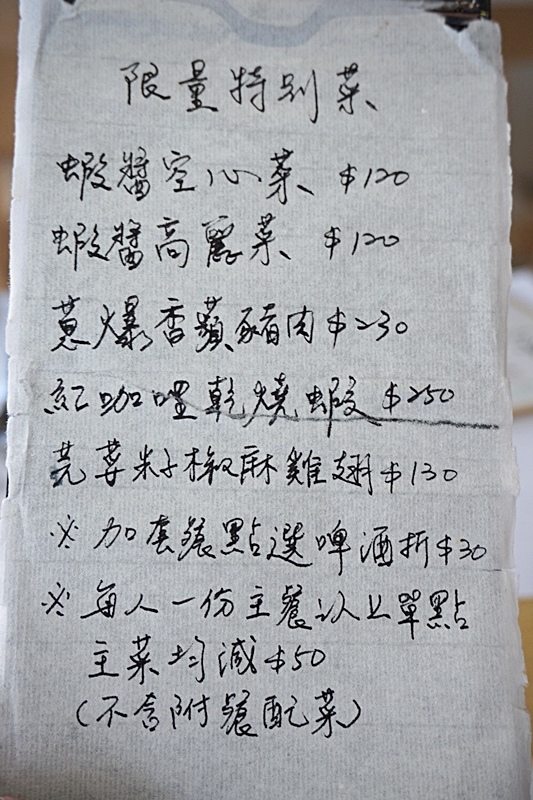 限量特別菜
蝦醬空心菜 $120
蝦醬高麗菜 $120
蔥爆香蘋豬肉 $230
紅咖哩乾燒蝦 $250
芫荽籽椒麻雞翅 $130
※ 加套餐點選啤酒折$30
※ 每人一份主餐以上單點
主菜均減$50
(不含附餐配菜)